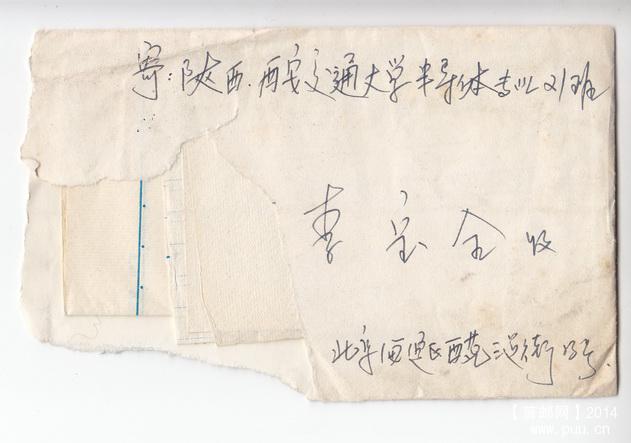 寄:陕西.西安交通大学半导体专业21班
李宝全收
北京西 区西苑三 街13号.
【普邮网】2014
www.puu.cn